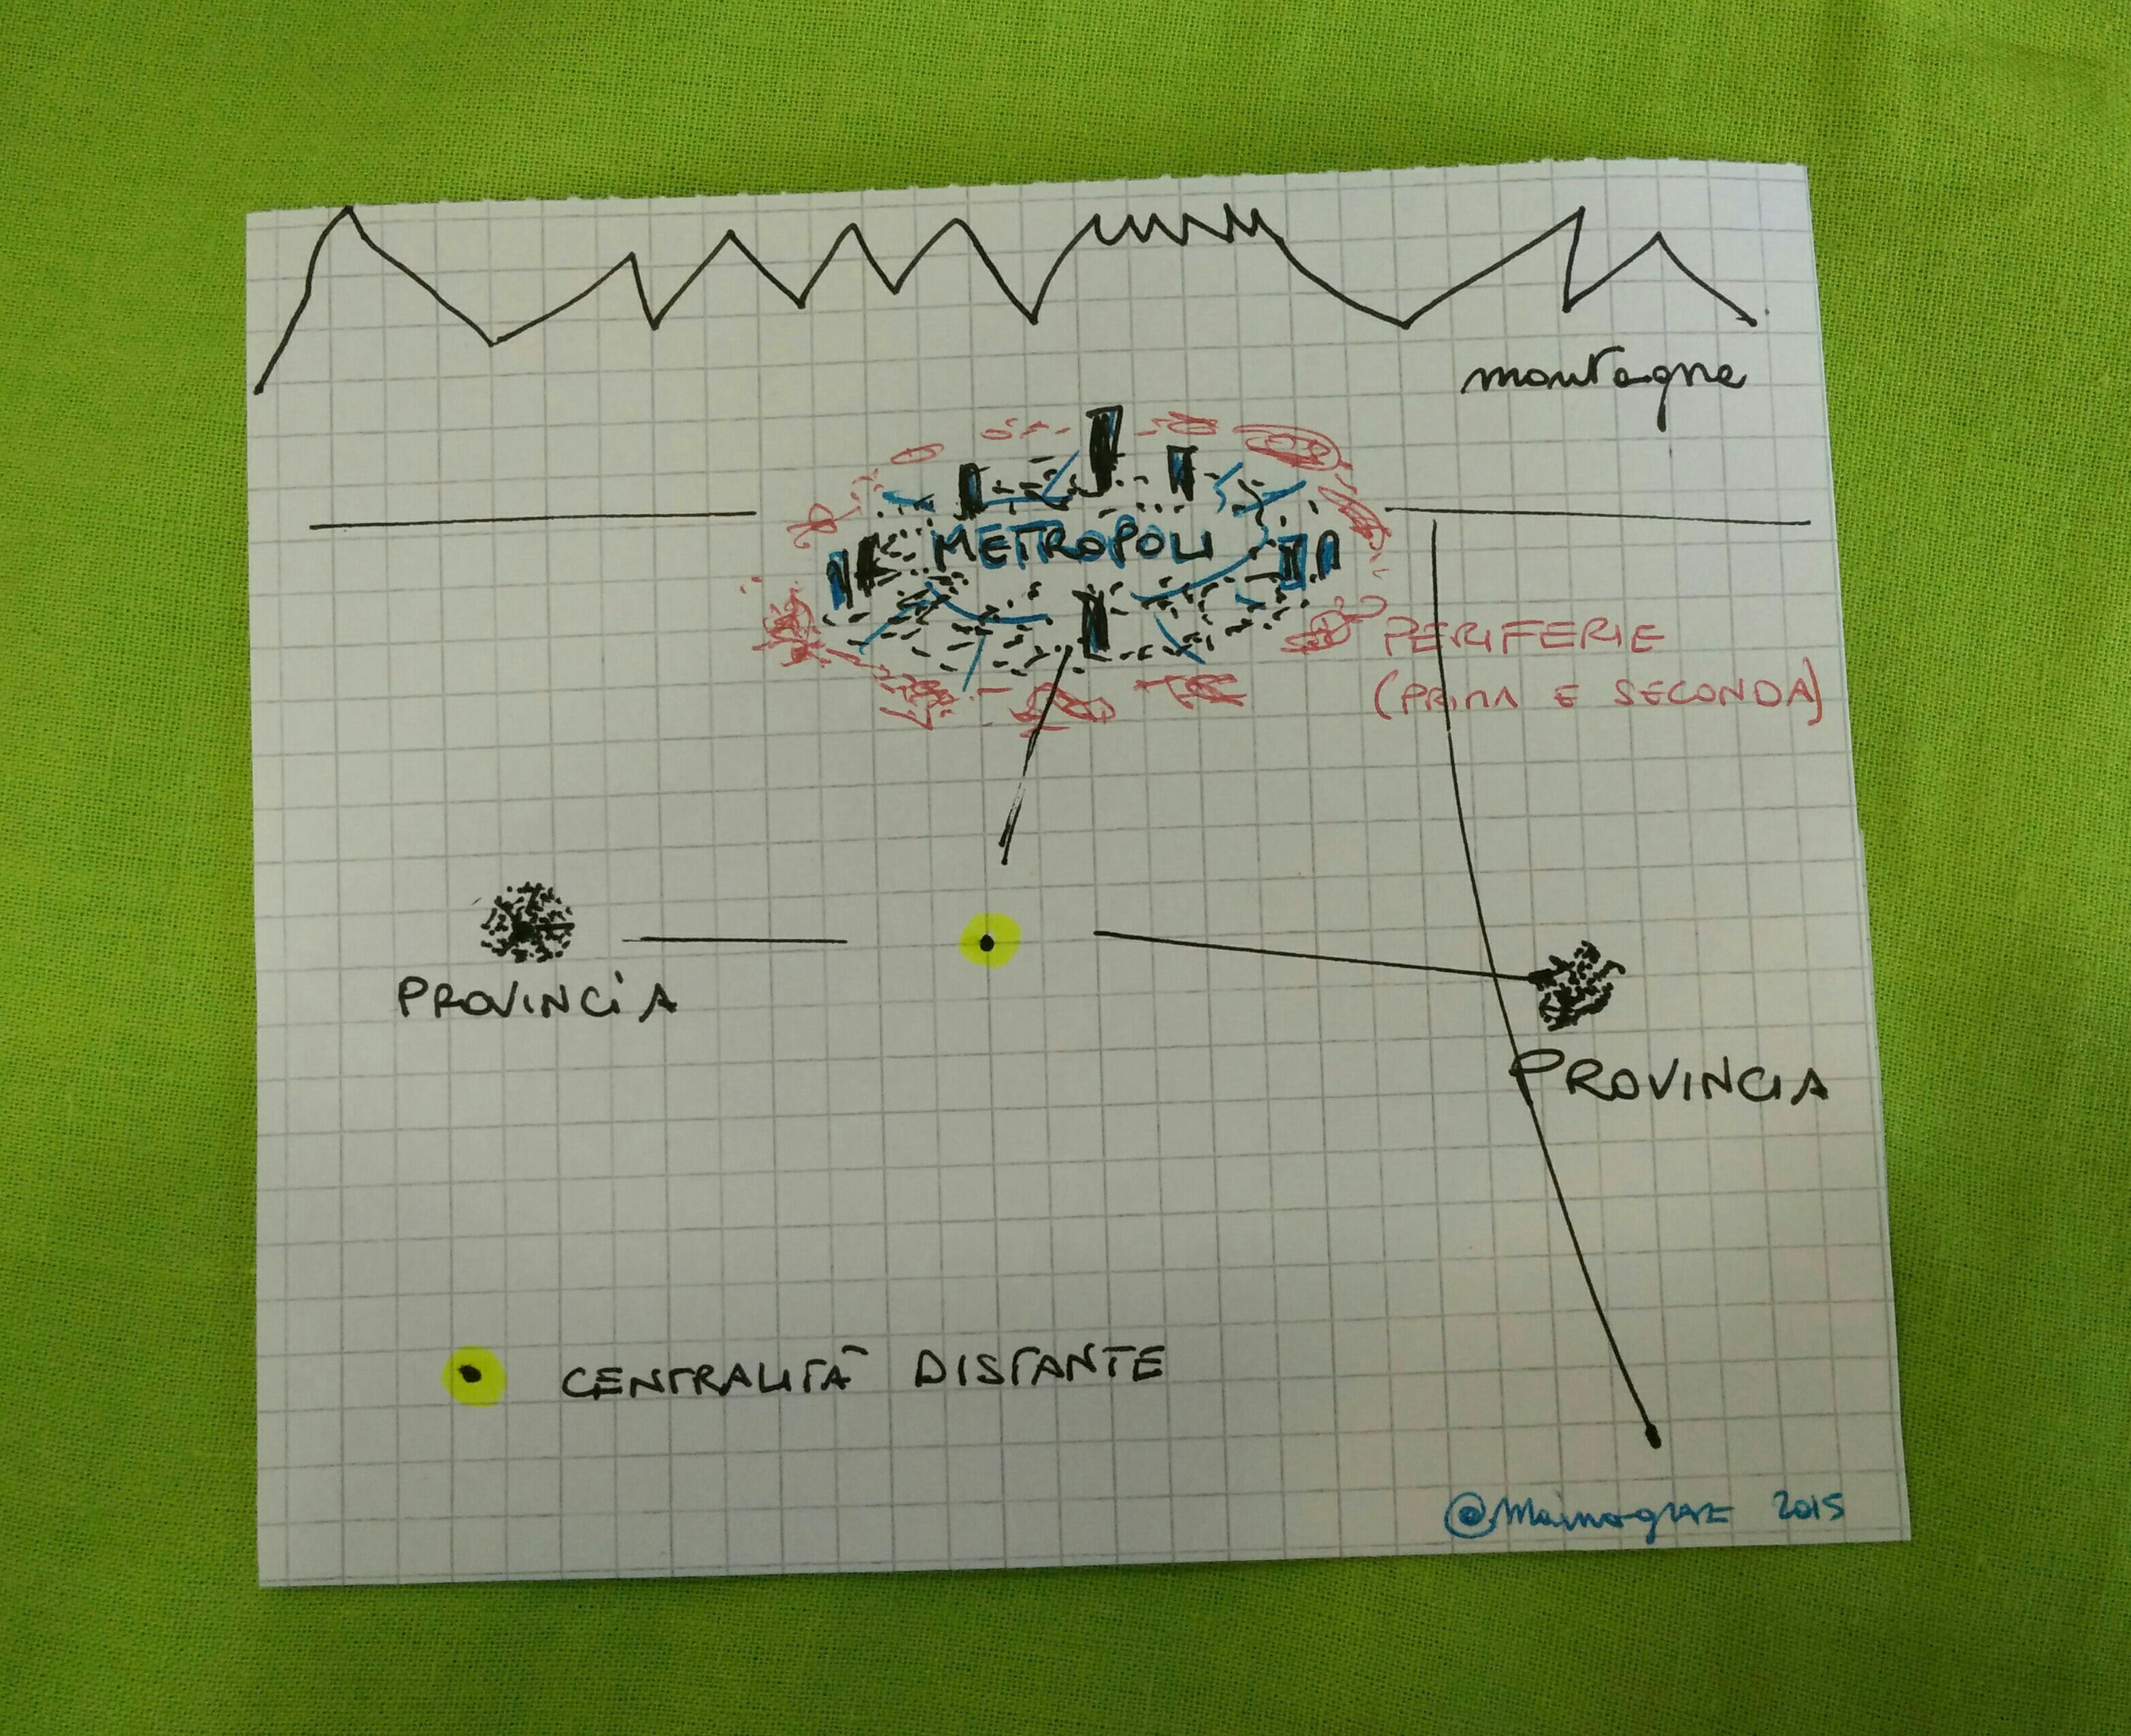 montagne
METROPOLI
PERIFERIE
(PRIMA E SECONDA)
PROVINCIA
PROVINCIA
CENTRALITÀ DISTANTE
2015